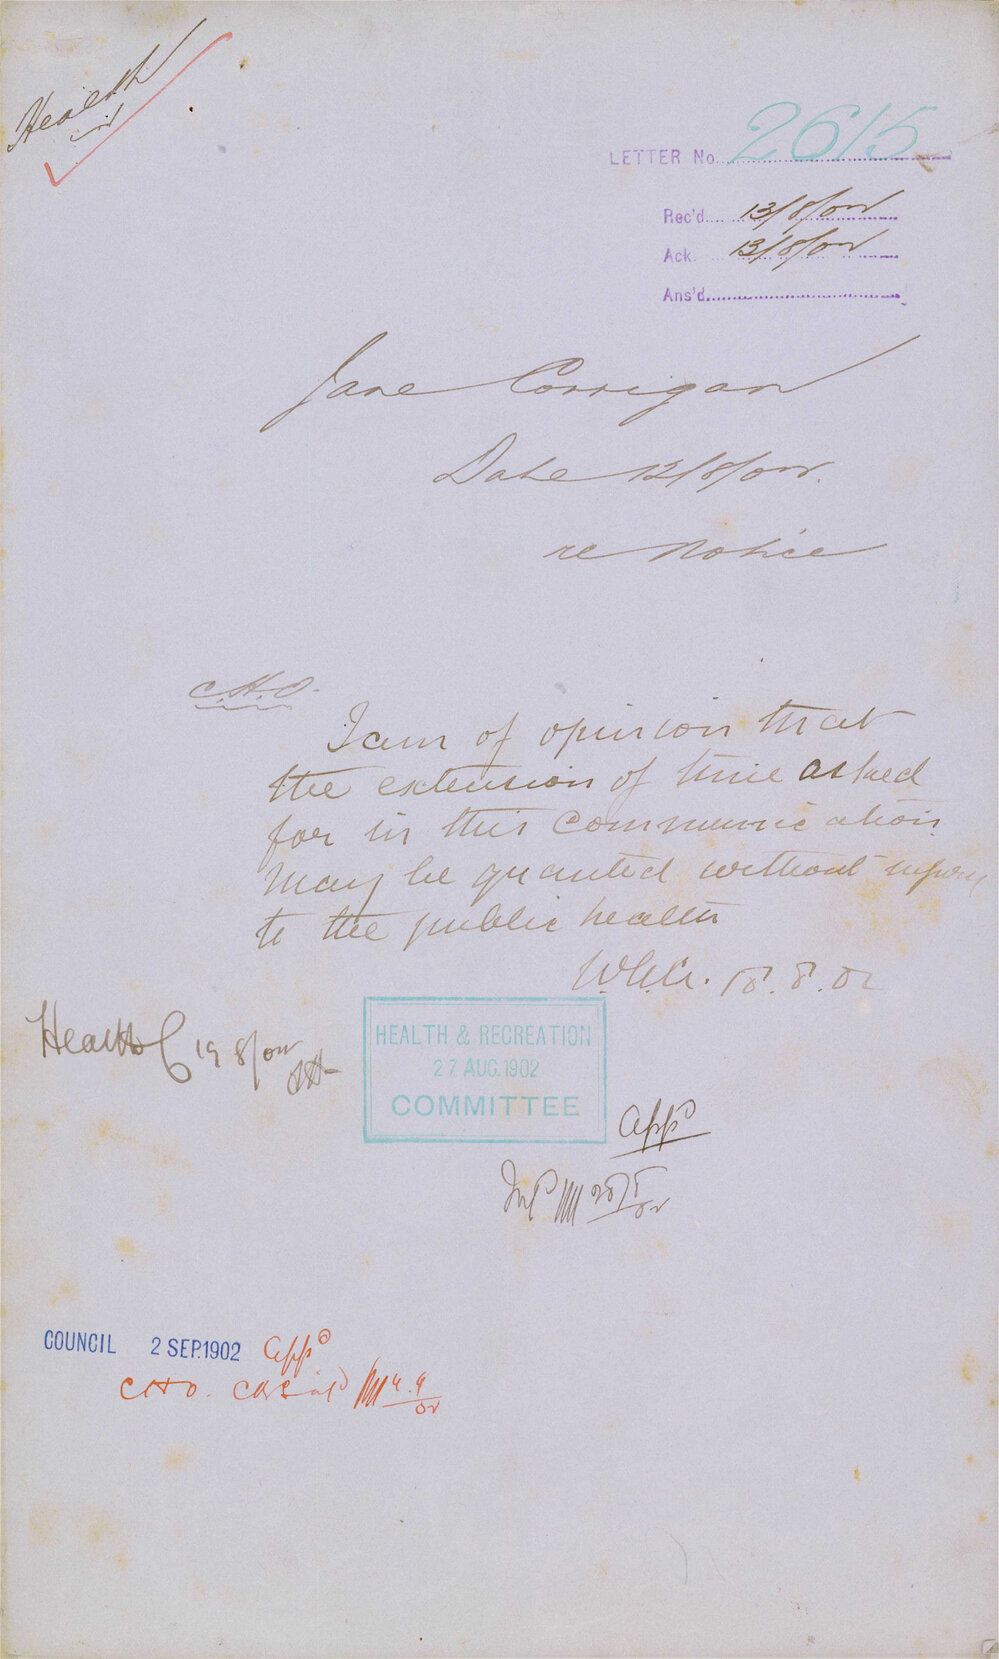 Health
LETTER No. 2615
Rec'd 13/8/02
Ack 13/8/02
Ans'd
Jane Corrigan
Date 12/8/02.
re Notice
C.H.O.
I am of opinion that
the extension of time asked
for in this communication
may be granted without injury
to the public health
18.8.02
Health C 19 8/02
HEALTH & RECREATION
27 AUG. 1902
COMMITTEE
appd
28/8/02
COUNCIL 2 SEP. 1902 appd
CHO. 4.9/02